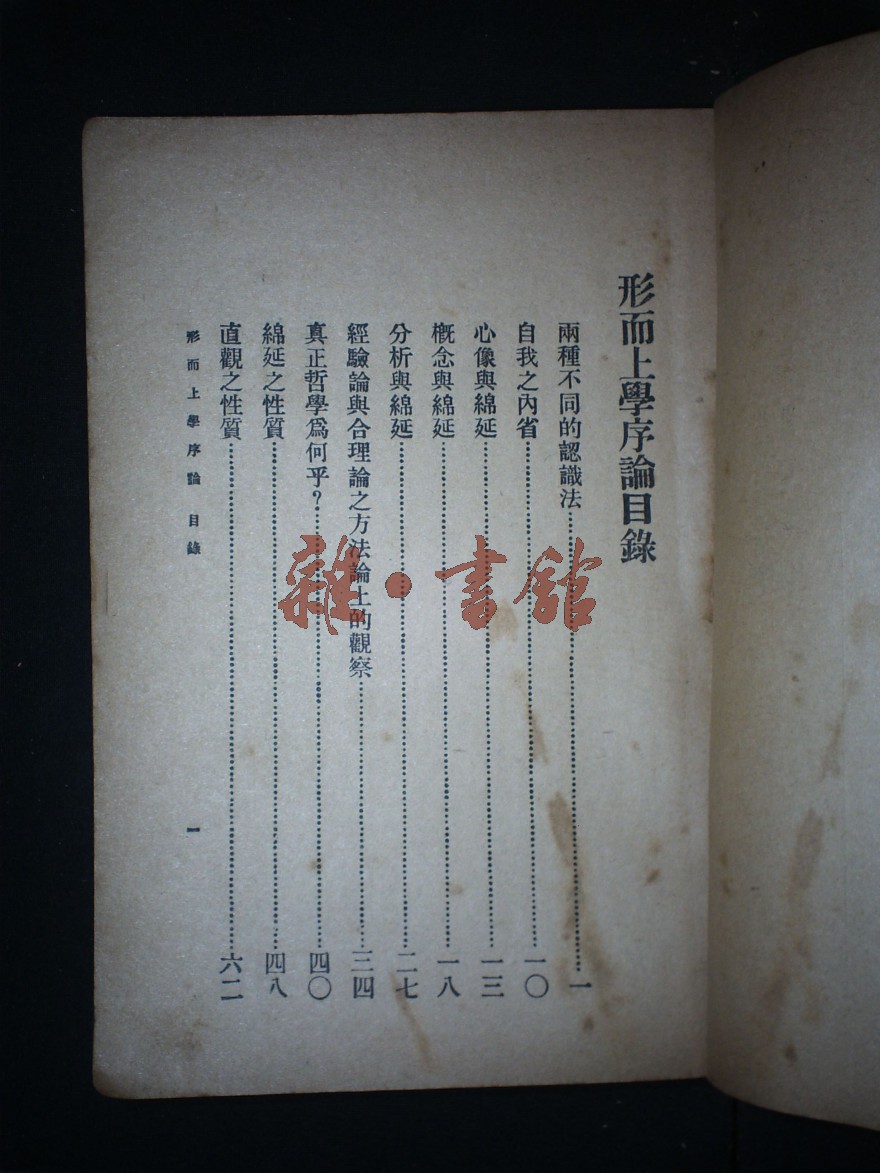 形而上學序論目錄
兩種不同的認識法……一
自我之內省……一〇
心像與綿延……一三
概念與綿延……一八
分析與綿延……二七
經驗論與合理論之方法論上的觀察……三四
真正哲學爲何乎？……四〇
綿延之性質……四八
直觀之性質……六二
形而上學序論 目錄 一
雜·書館